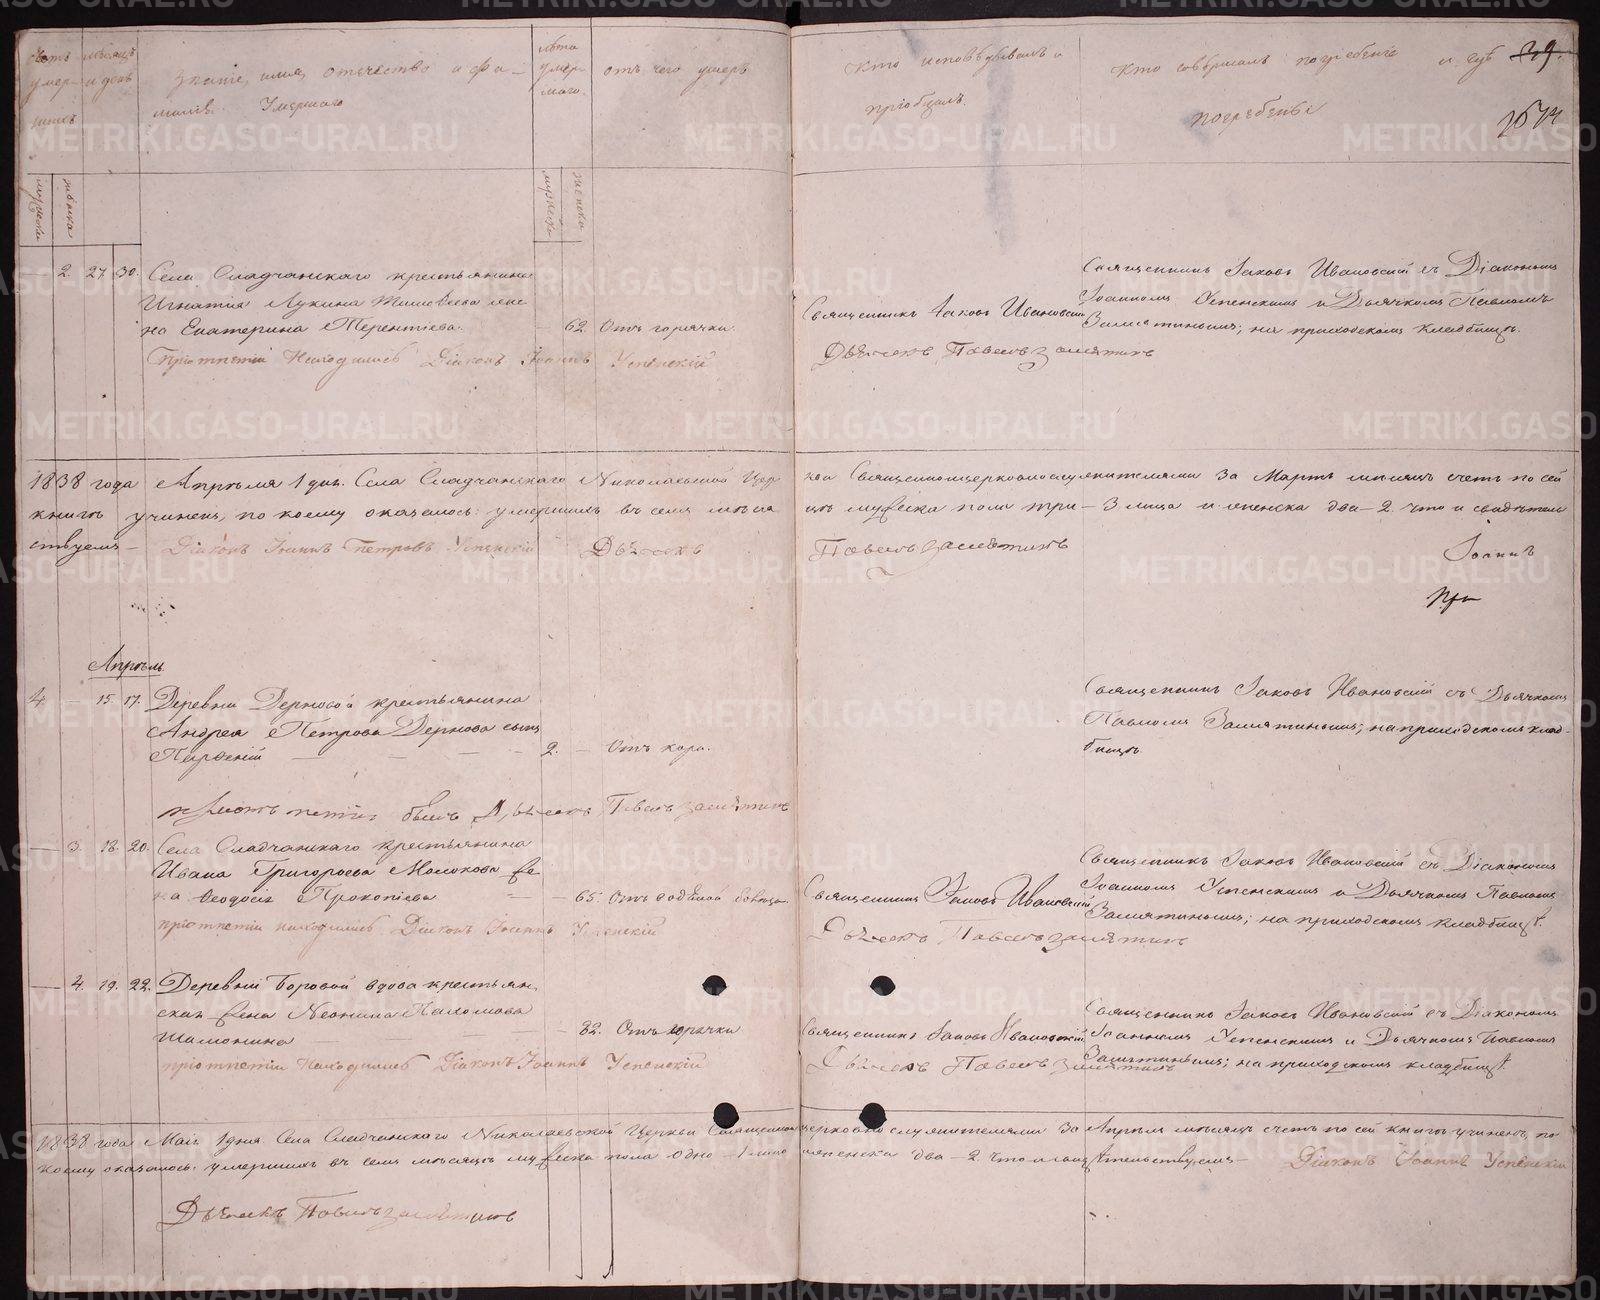 Счетъ умер- шихъ
мѣсяцъ и день
званіе, имя, отечество и фа-
милія Умершаго
лѣта умер- шаго.
отъ чего умеръ
Кто исповѣдывалъ и
пріобщалъ.
Кто совершалъ погребеніе и гдѣ
погребены
39.
мужеска
женска
мужеска
женска
— 2. 27 30. Села Сладчанскаго крестьянина
Игнатія Лукина жена
на Екатерина Терентіева. — 62. Отъ горячки.
Священникъ Іаковъ Ивановскій
Дьячекъ Павелъ Замятинъ
Священникъ Іаковъ Ивановскій съ Діакономъ
Іоанномъ Успенскимъ и Дьячкомъ Павломъ
Замятинымъ; на приходскомъ кладбищѣ.
При отпѣтіи находились Діаконъ Іоаннъ Успенскій
1838 года Апрѣля 1 дня. Села Сладчанскаго Николаевской Цер
кви Священноцерковнослужителями За Мартъ мѣсяцъ счетъ по сей
книгѣ учиненъ, по коему оказалось: умершихъ въ семъ мѣся
цѣ мужеска пола три — 3 лица и женска два — 2. что и свидѣтель
ствуемъ — Діаконъ Іоаннъ Петровъ Успенскій Дьячекъ
Павелъ Замятинъ
Іоаннъ
Апрѣль
4 — 15. 17. Деревни Дерновой крестьянина
Андрея Петрова Дернова сынъ
Парѳеній — — — 2. — Отъ кора.
Священникъ Іаковъ Ивановскій съ Дьячкомъ
Павломъ Замятинымъ; на приходскомъ клад-
бищѣ.
при отпѣтіи былъ Дьячекъ Павелъ Замятинъ
— 3. 18. 20. Села Сладчанскаго крестьянина
Ивана Григорьева Молокова же
на Ѳеодосія Прокопіева — — 65. Отъ
Священникъ Іаковъ Ивановскій
Дьячекъ Павелъ Замятинъ
Священникъ Іаковъ Ивановскій съ Діакономъ
Іоанномъ Успенскимъ и Дьячкомъ Павломъ
Замятинымъ; на приходскомъ кладбищѣ.
при отпѣтіи находились Діаконъ Іоаннъ Успенскій
— 4. 19. 22. Деревни Боровой вдова крестьян-
ская жена Неонила
— — 82. Отъ горячки
Священникъ Іаковъ Ивановскій
Дьячекъ Павелъ Замятинъ
Священникъ Іаковъ Ивановскій съ Діакономъ
Іоанномъ Успенскимъ и Дьячкомъ Павломъ
Замятинымъ; на приходскомъ кладбищѣ.
при отпѣтіи находились Діаконъ Іоаннъ Успенскій
1838 года Маія 1 дня Села Сладчанскаго Николаевской Церкви Священно церковно служителями За Апрѣль мѣсяцъ счетъ по сей книгѣ учиненъ, по
коему оказалось: умершихъ въ семъ мѣсяцѣ мужеска пола одно — 1 лицо женска два — 2 что и свидѣтельствуемъ — Діаконъ Іоаннъ Успенскій
Дьячекъ Павелъ Замятинъ
METRIKI.GASO-URAL.RU